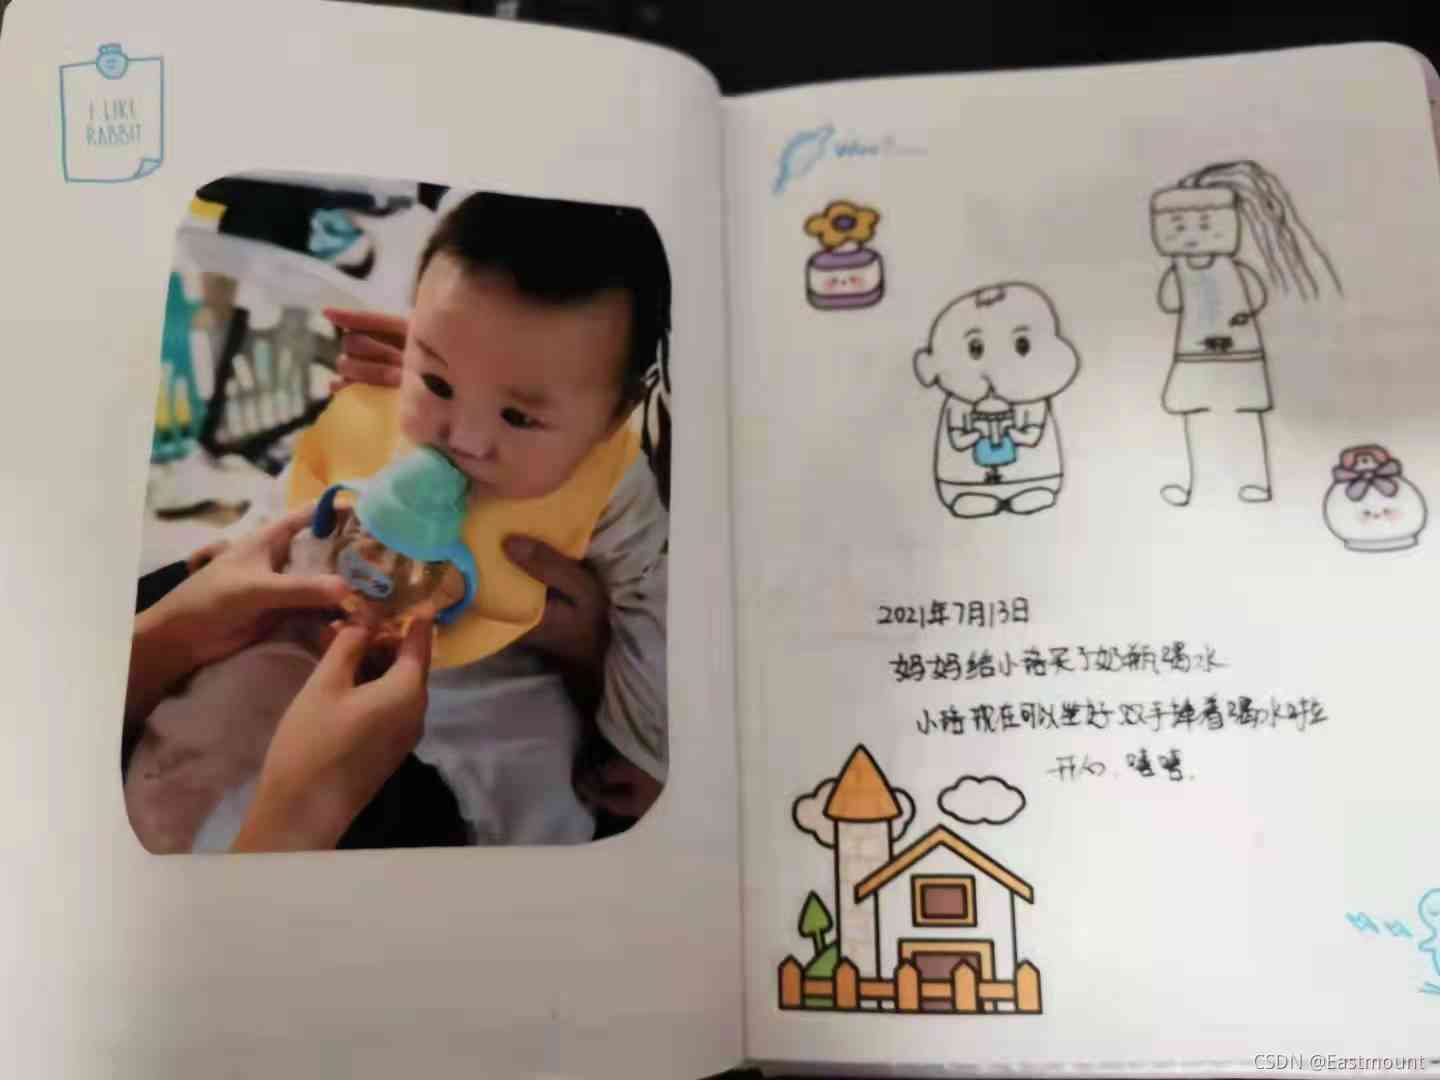 I LIKE
RABBIT
2021年7月13日
妈妈给小珞买了奶瓶喝水
小珞现在可以坐好双手捧着喝水啦
开心.嘻嘻.
CSDN @Eastmount